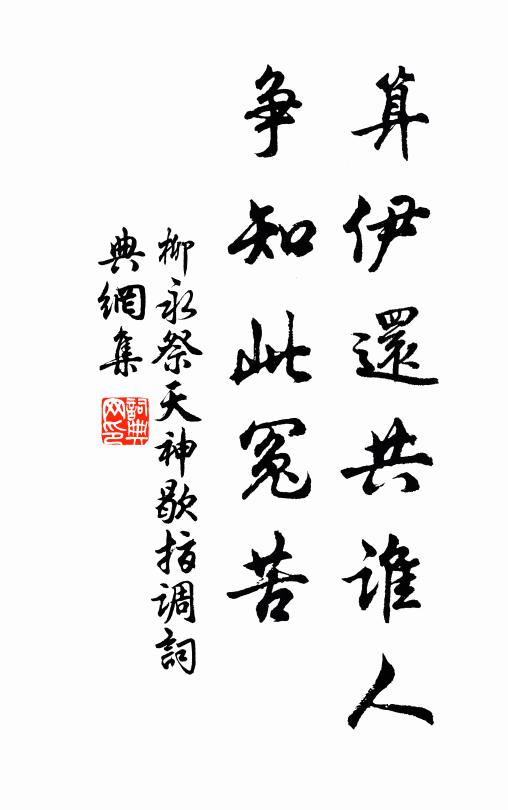 算伊還共誰人
争知此冤苦
柳永祭天神歇指調詞
典網集
詞典網印